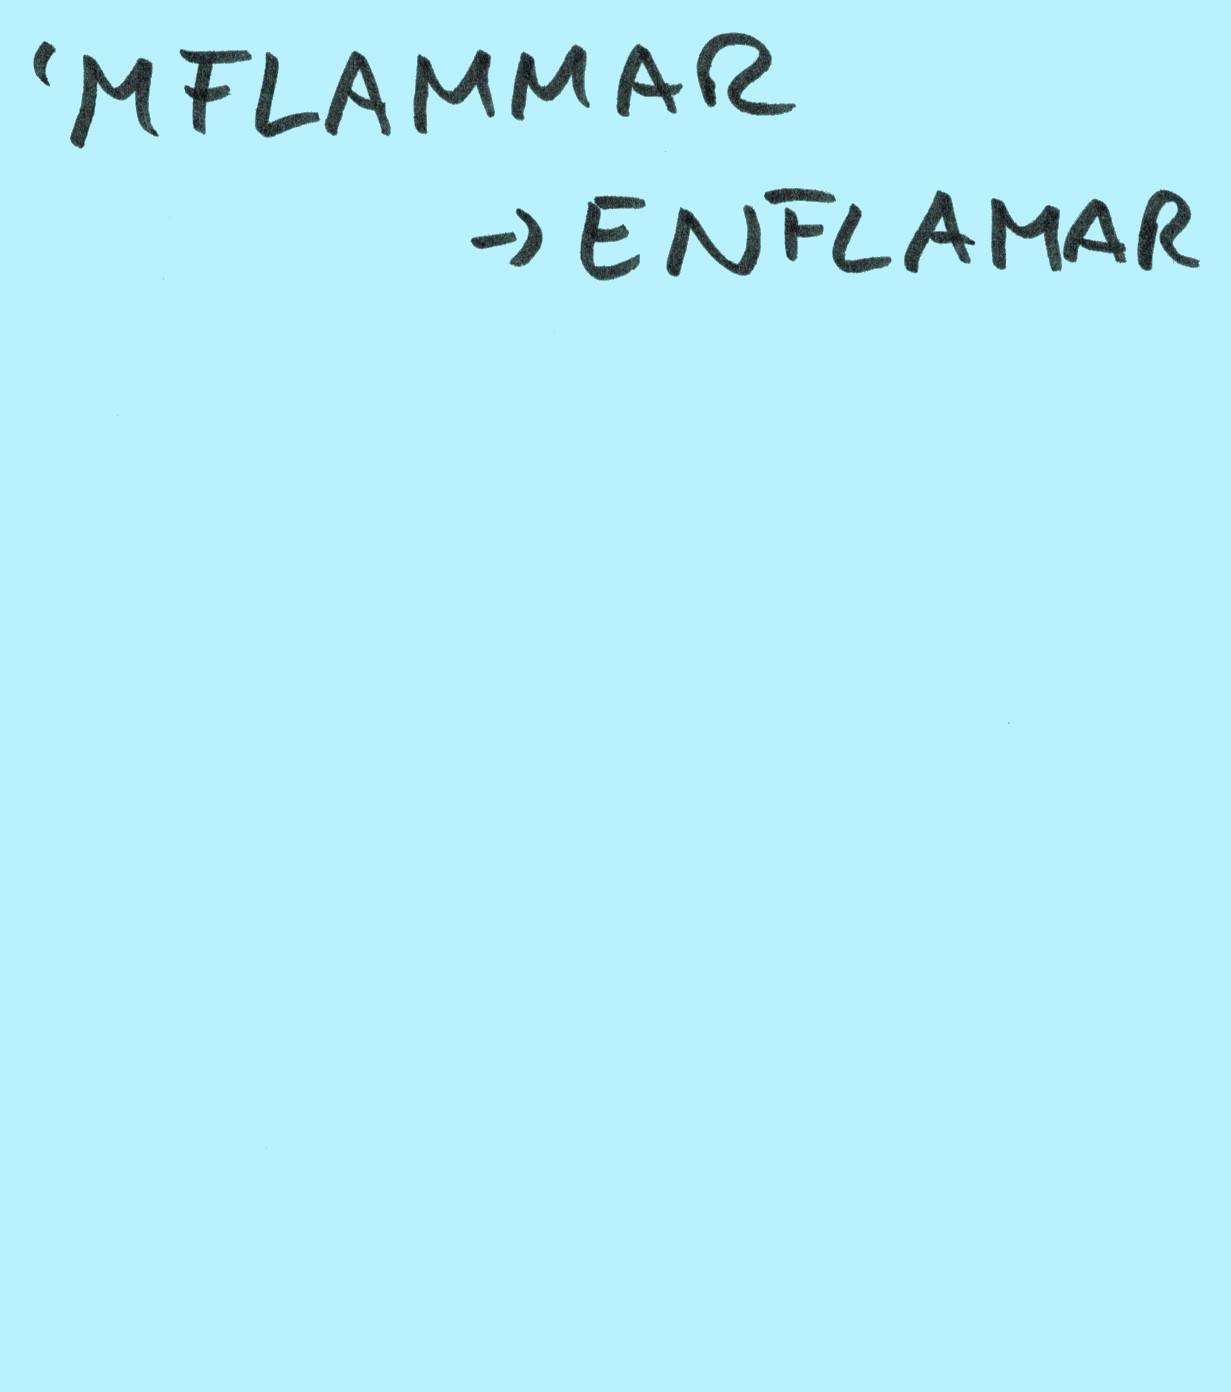 'MFLAMMAR
→ ENFLAMAR